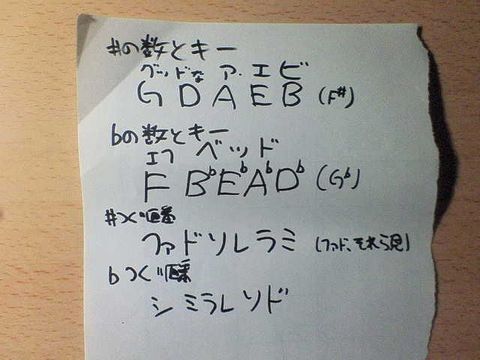 #の数とキー
グッドな ア・エビ
G D A E B (F#)
bの数とキー
エフ ベッド
F B♭E♭A♭D♭ (G♭)
#つく順番
ファドソレラミ (ファド、それら見)
bつく順番
シミラレソド